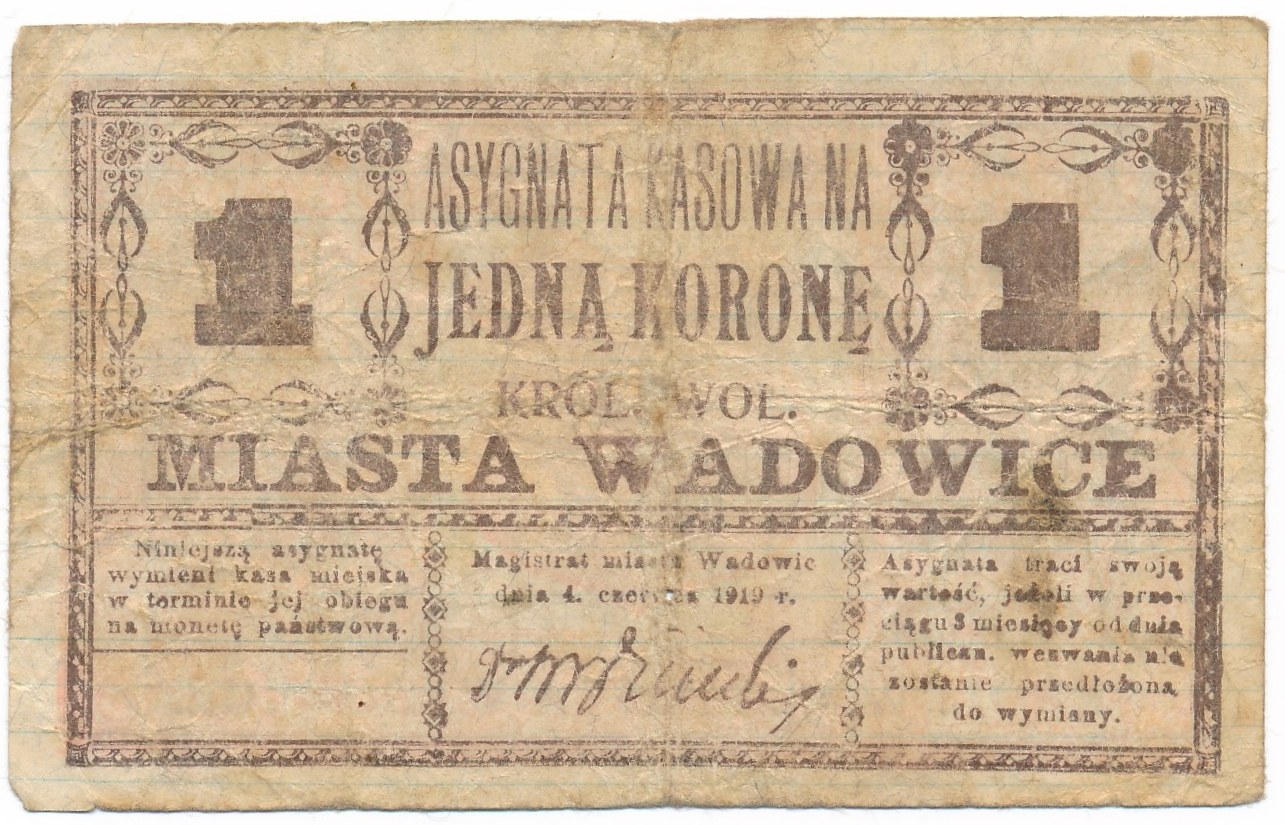 1
ASYGNATA KASOWA NA
1
JEDNĄ KORONĘ
KRÓL. WOL.
MIASTA WADOWICE
Niniejszą asygnatę
wymieni kasa miejska
w terminie jej obiegu
na monetę państwową.
Magistrat miasta Wadowic
dnia 4. czerwca 1919 r.
Asygnata traci swoją
wartość, jeżeli w prze-
ciągu 3 miesięcy od dnia
publiczn. wezwania nie
zostanie przedłożona
do wymiany.